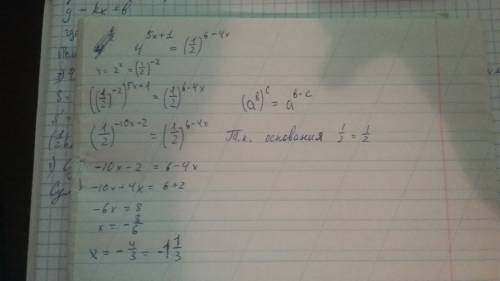 y = kx + b
4^(5x+1) = (1/2)^(6-4x)
4 = 2² = (1/2)^(-2)
((1/2)^(-2))^(5x+1) = (1/2)^(6-4x) (a^b)^c = a^(b·c)
(1/2)^(-10x-2) = (1/2)^(6-4x) Т.к. основания 1/2 = 1/2
-10x - 2 = 6 - 4x
-10x + 4x = 6 + 2
-6x = 8
x = - 8/6
x = - 4/3 = -1 1/3